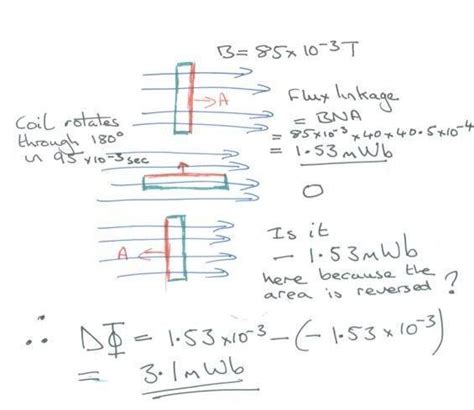 B = 85 × 10⁻³ T
→ A
Flux linkage
= BNA
= 85×10⁻³ × 40 × 40.5×10⁻⁴
= 1.53 mWb
Coil rotates
through 180°
in 95 ×10⁻³ sec
0
A
Is it
- 1.53 mWb
here because the
area is reversed ?
∴ ΔΦ = 1.53 ×10⁻³ - (- 1.53 ×10⁻³)
= 3.1 mWb